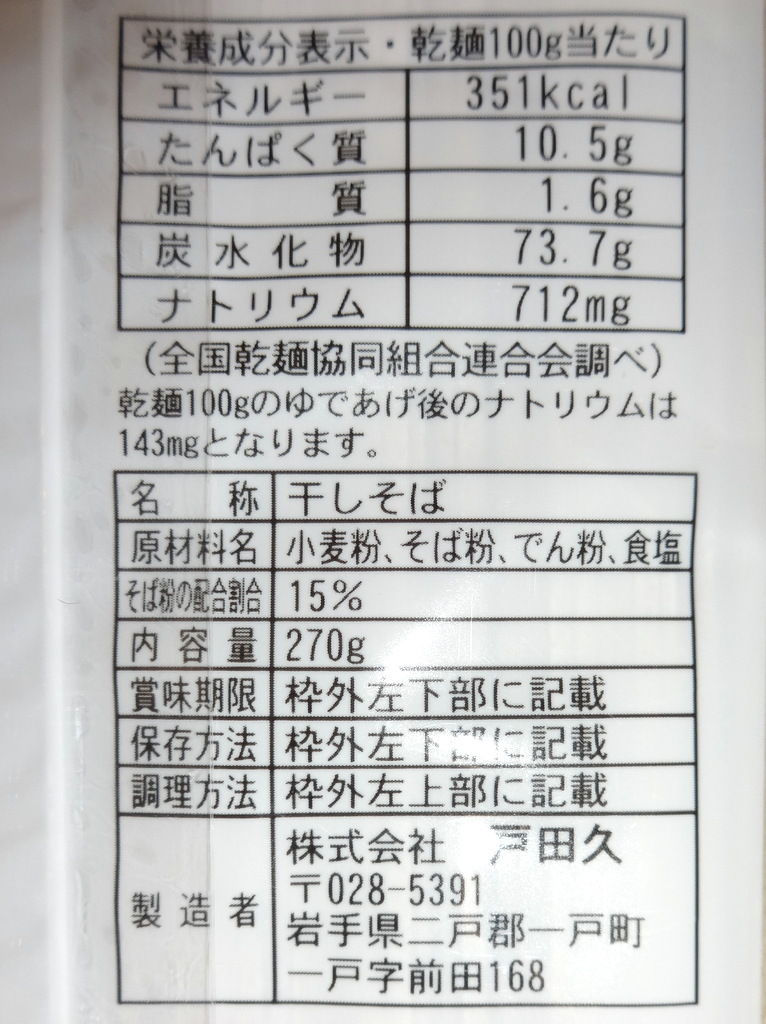 栄養成分表示・乾麺100g当たり
エネルギー 351kcal
たんぱく質 10.5g
脂質 1.6g
炭水化物 73.7g
ナトリウム 712mg
(全国乾麺協同組合連合会調べ)
乾麺100gのゆであげ後のナトリウムは
143mgとなります。
名称 干しそば
原材料名 小麦粉、そば粉、でん粉、食塩
そば粉の配合割合 15%
内容量 270g
賞味期限 枠外左下部に記載
保存方法 枠外左下部に記載
調理方法 枠外左上部に記載
製造者 株式会社 戸田久
〒028-5391
岩手県二戸郡一戸町
一戸字前田168